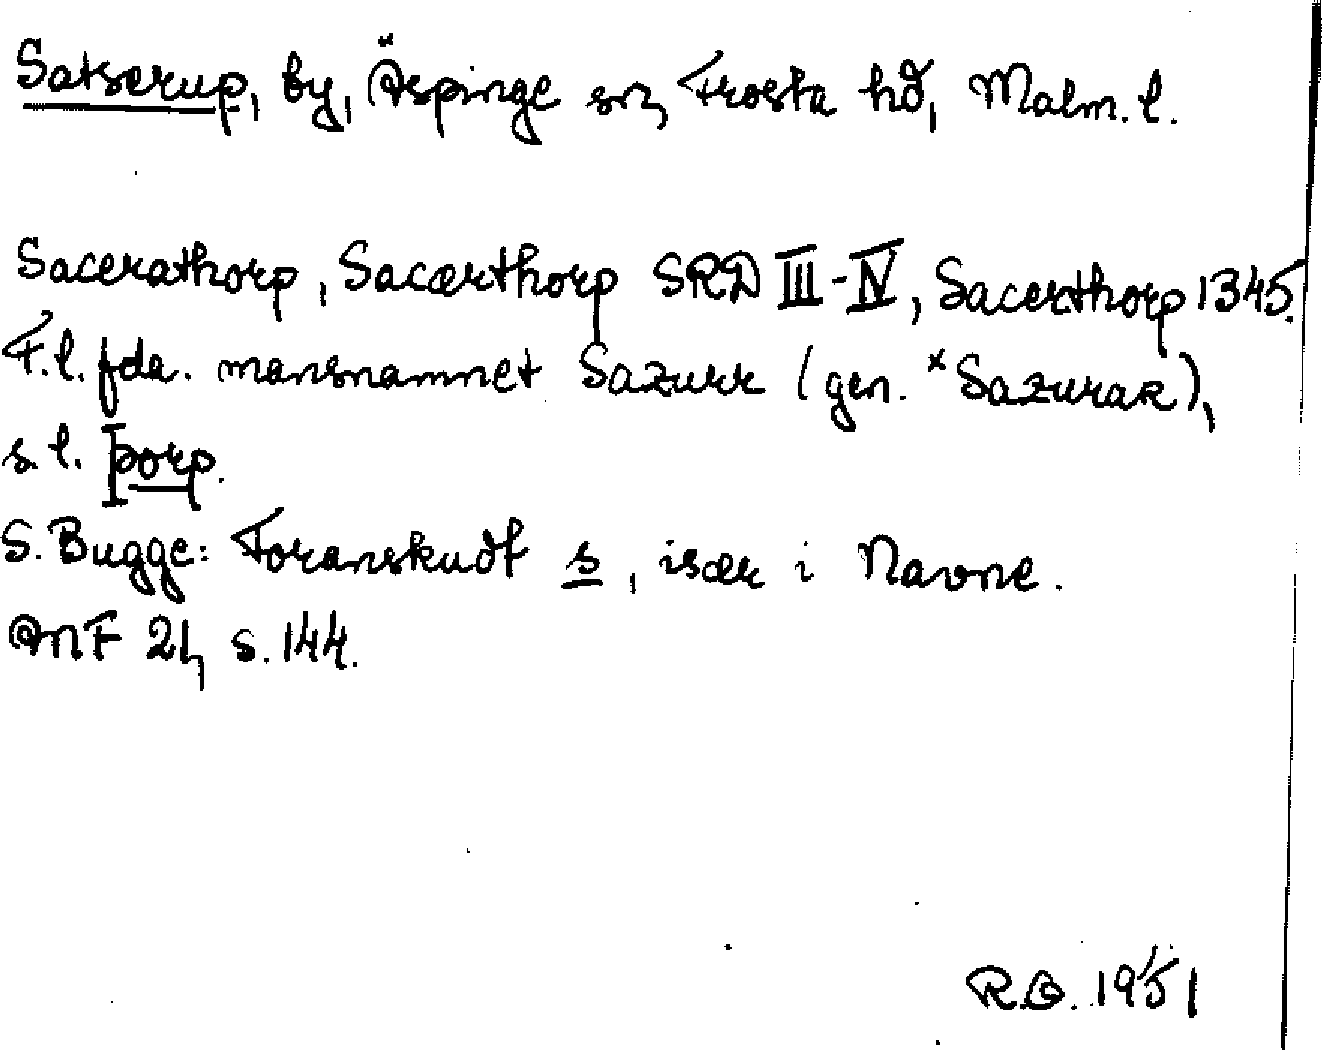 Satserup, by, Äspinge sn, Frosta hd, Malm. l.
Sacerathorp, Sacærthorp SRD III-IV, Sacerthorp 1345.
F.l. fda. mansnamnet Sazurr (gen. *Sazurar),
s.l. þorp.
S. Bugge: Foranskudt s, især i Navne.
ANF 21, s. 144.
1951